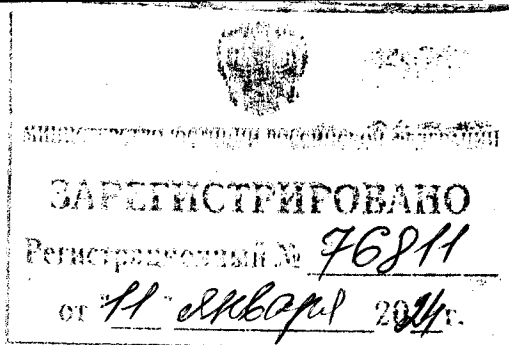 МИНИСТЕРСТВО ЮСТИЦИИ РОССИЙСКОЙ ФЕДЕРАЦИИ
ЗАРЕГИСТРИРОВАНО
Регистрационный № 76811
от "11" января 2024 г.